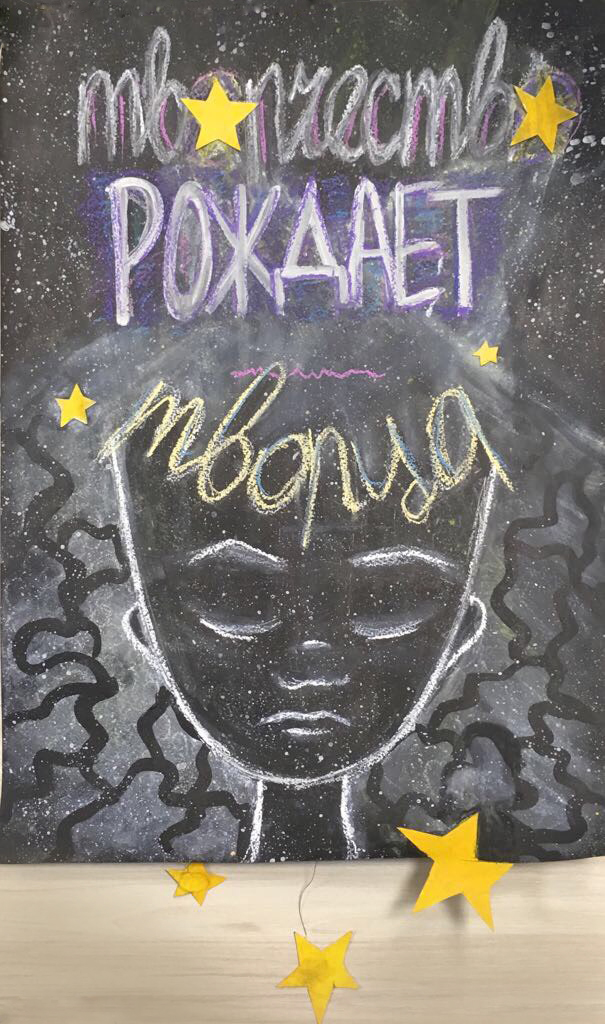 творчество
РОЖДАЕТ
творца